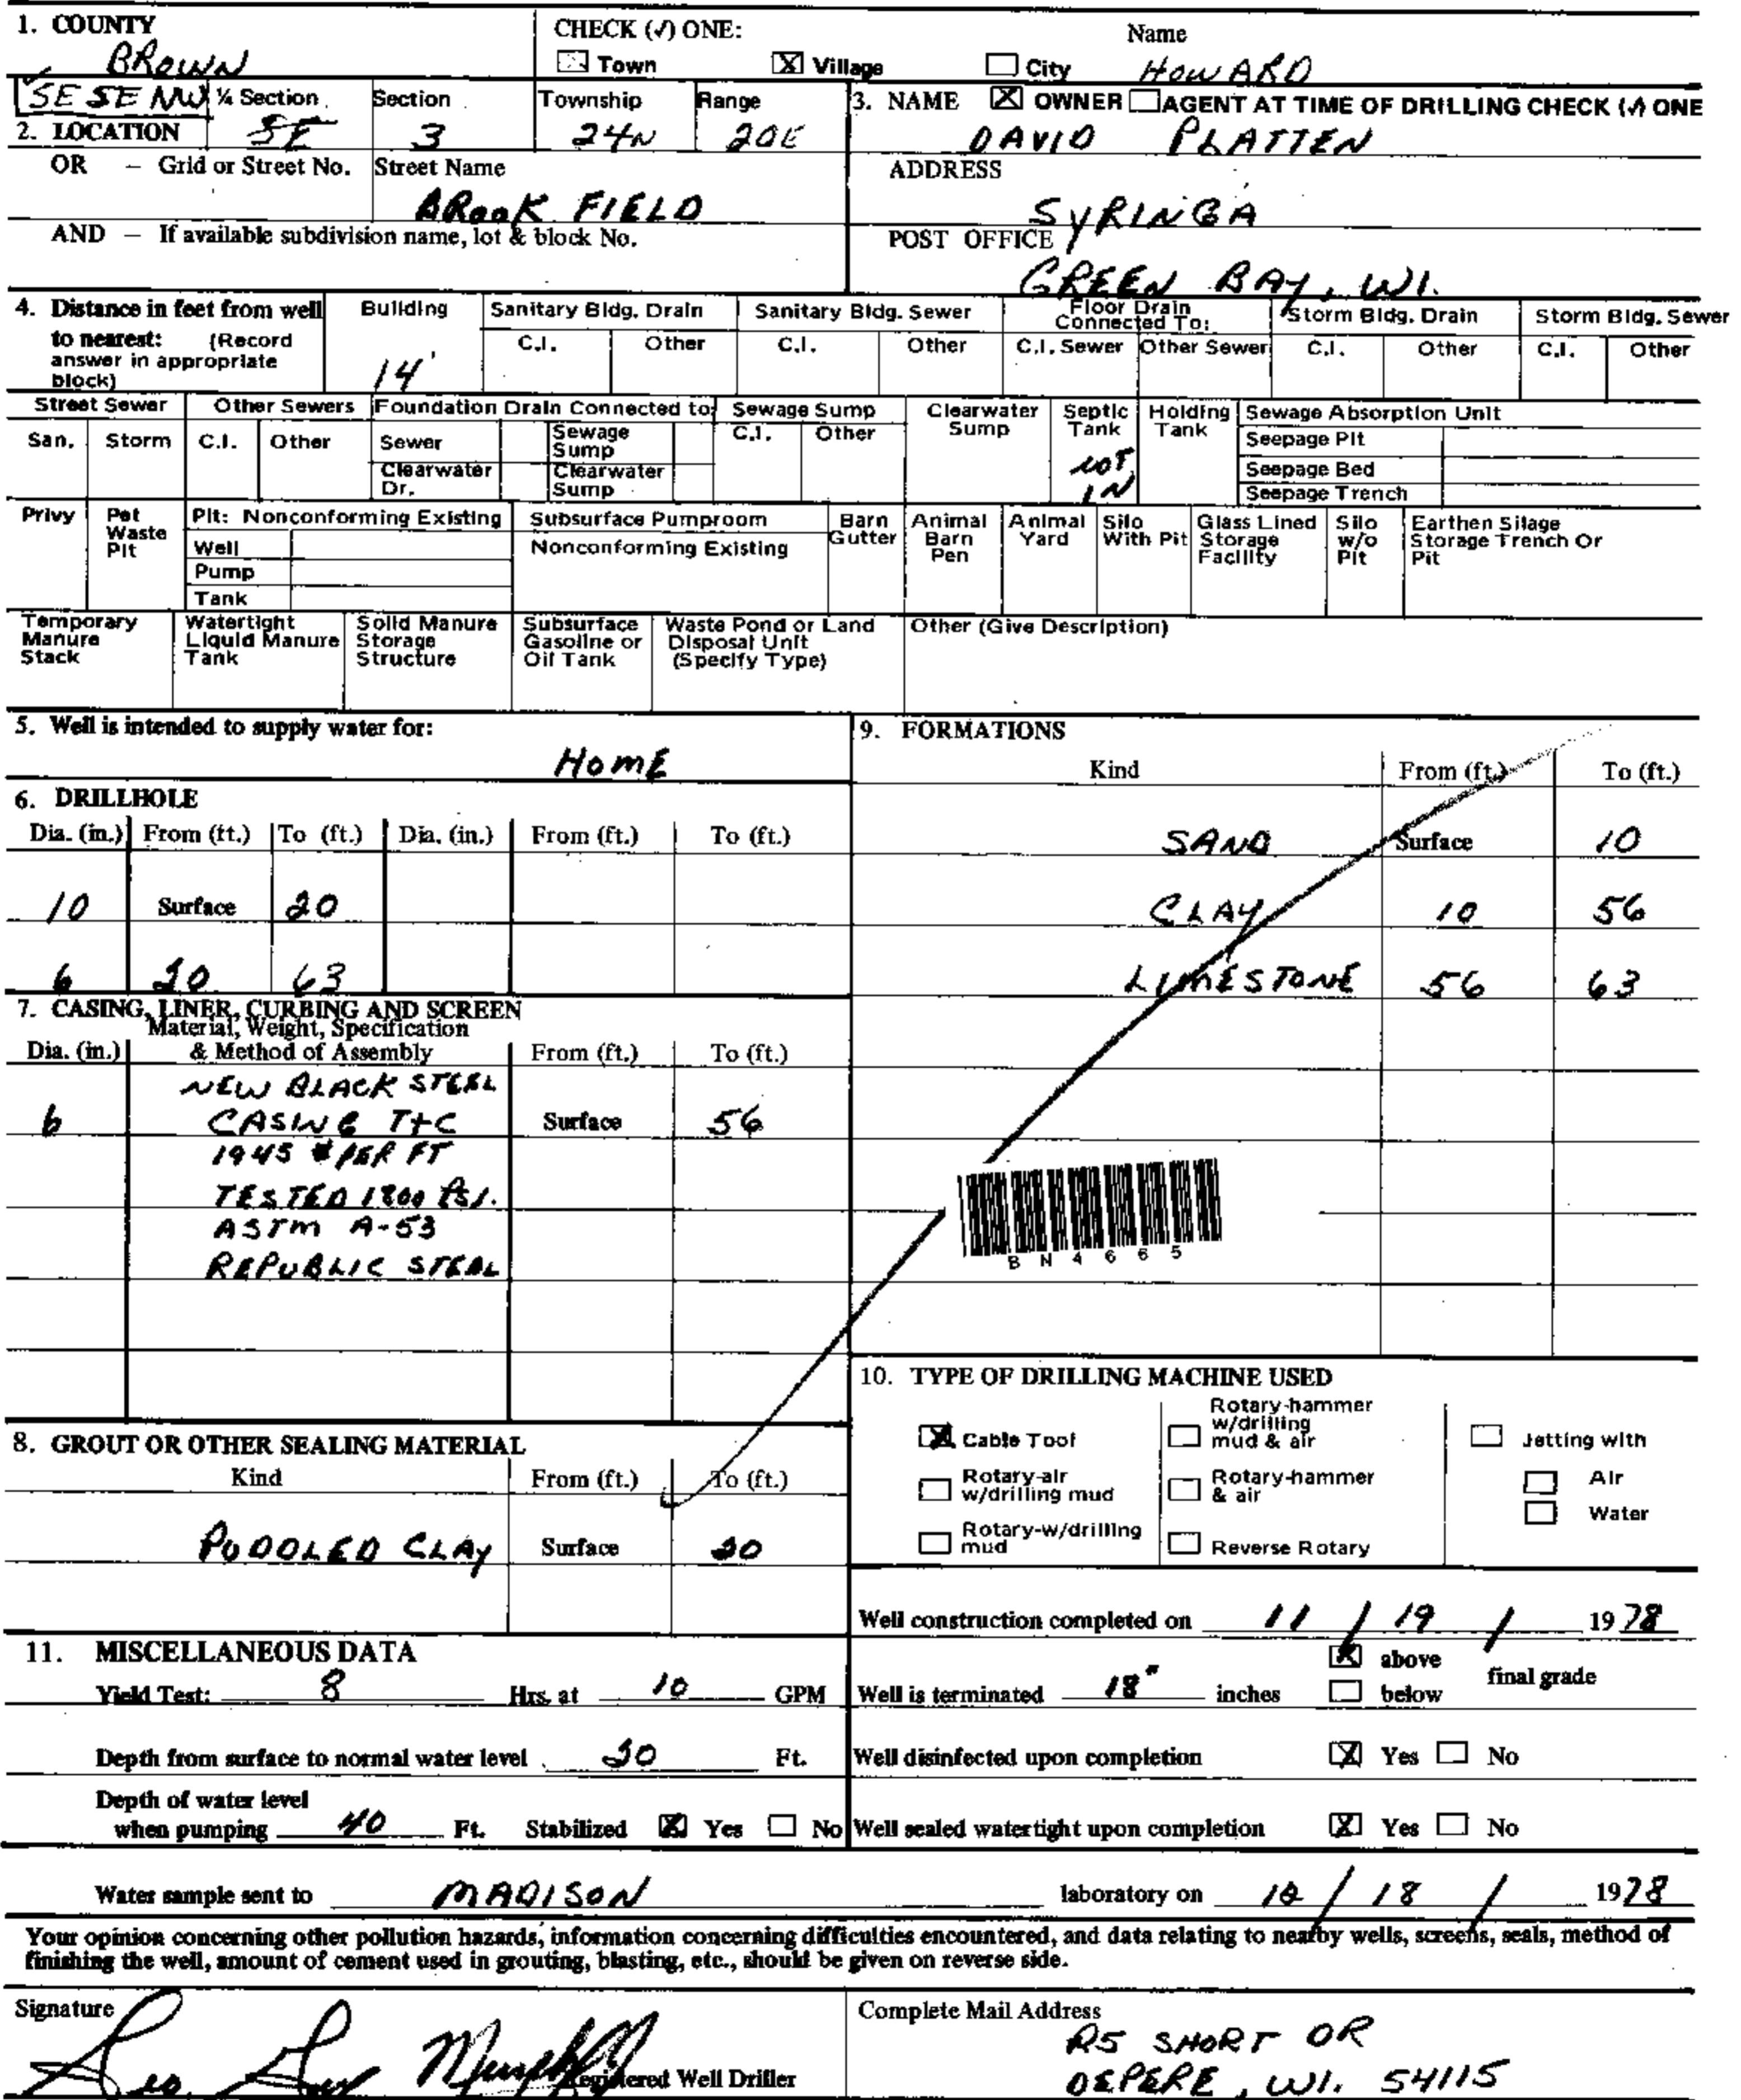 1. COUNTY
BROWN
CHECK (✓) ONE:
Town
Village
City
Name
HOWARD
SE SE NW
¼ Section
SE
Section
3
Township
24N
Range
20E
3. NAME OWNER AGENT AT TIME OF DRILLING CHECK (✓) ONE
DAVID PLATTEN
2. LOCATION
OR – Grid or Street No. Street Name
BROOK FIELD
ADDRESS
SYRINGA
AND – If available subdivision name, lot & block No.
POST OFFICE
GREEN BAY, WI.
4. Distance in feet from well
to nearest: (Record
answer in appropriate
block)
Building
14'
Sanitary Bldg. Drain
C.I. Other
Sanitary Bldg. Sewer
C.I. Other
Floor Drain
Connected To:
C.I. Sewer Other Sewer
Storm Bldg. Drain
C.I. Other
Storm Bldg. Sewer
C.I. Other
Street Sewer
San. Storm
Other Sewers
C.I. Other
Foundation Drain Connected to
Sewer
Clearwater
Dr.
Sewage
Sump
Clearwater
Sump
Sewage Sump
C.I. Other
Clearwater
Sump
Septic
Tank
NOT
IN
Holding
Tank
Sewage Absorption Unit
Seepage Pit
Seepage Bed
Seepage Trench
Privy
Pet
Waste
Pit
Pit: Nonconforming Existing
Well
Pump
Tank
Subsurface Pumproom
Nonconforming Existing
Barn
Gutter
Animal
Barn
Pen
Animal
Yard
Silo
With Pit
Glass Lined
Storage
Facility
Silo
w/o
Pit
Earthen Silage
Storage Trench Or
Pit
Temporary
Manure
Stack
Watertight
Liquid Manure
Tank
Solid Manure
Storage
Structure
Subsurface
Gasoline or
Oil Tank
Waste Pond or Land
Disposal Unit
(Specify Type)
Other (Give Description)
5. Well is intended to supply water for:
HOME
6. DRILLHOLE
Dia. (in.) From (ft.) To (ft.) Dia. (in.) From (ft.) To (ft.)
10 Surface 20
6 20 63
7. CASING, LINER, CURBING AND SCREEN
Material, Weight, Specification
Dia. (in.) & Method of Assembly From (ft.) To (ft.)
NEW BLACK STEEL
6 CASING T+C Surface 56
1945 # PER FT
TESTED 1800 PSI.
ASTM A-53
REPUBLIC STEEL
8. GROUT OR OTHER SEALING MATERIAL
Kind From (ft.) To (ft.)
PUDDLED CLAY Surface 20
9. FORMATIONS
Kind From (ft.) To (ft.)
SAND Surface 10
CLAY 10 56
LIMESTONE 56 63
BN4665
10. TYPE OF DRILLING MACHINE USED
Cable Tool
Rotary-air
w/drilling mud
Rotary-w/drilling
mud
Rotary-hammer
w/drilling
mud & air
Rotary-hammer
& air
Reverse Rotary
Jetting with
Air
Water
11. MISCELLANEOUS DATA
Yield Test: 8 Hrs. at 10 GPM
Depth from surface to normal water level 20 Ft.
Depth of water level
when pumping 40 Ft. Stabilized Yes No
Well construction completed on 11 / 19 / 1978
Well is terminated 18" inches above below final grade
Well disinfected upon completion Yes No
Well sealed watertight upon completion Yes No
Water sample sent to MADISON laboratory on 12 / 18 / 1978
Your opinion concerning other pollution hazards, information concerning difficulties encountered, and data relating to nearby wells, screens, seals, method of
finishing the well, amount of cement used in grouting, blasting, etc., should be given on reverse side.
Signature
Registered Well Driller
Complete Mail Address
R5 SHORT DR
DEPERE, WI. 54115